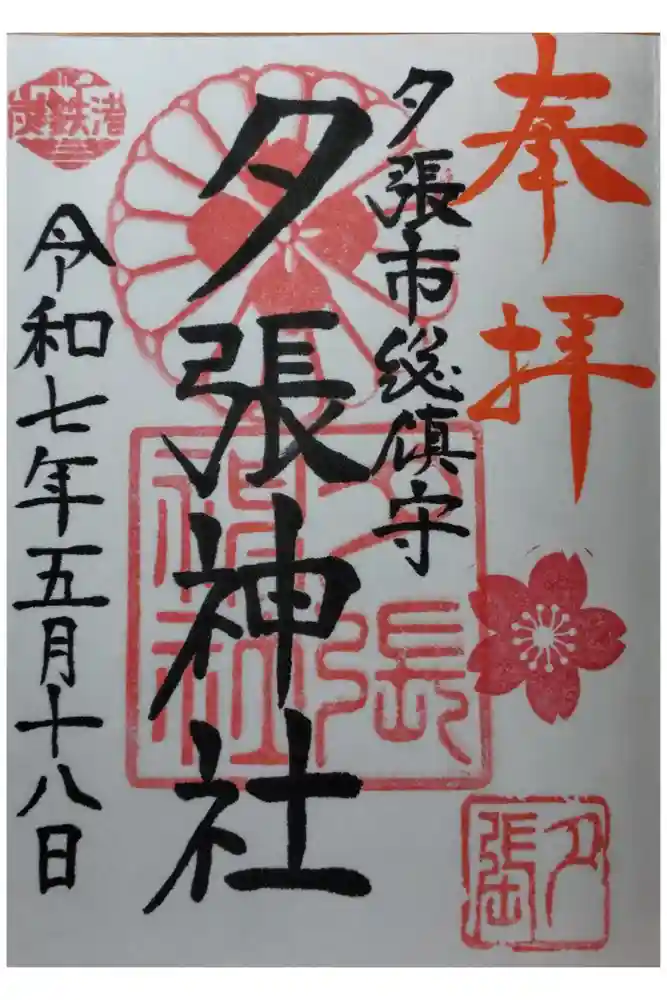 奉拝
夕張
夕張市総鎮守
夕張神社
夕張神社
炭鉄港
令和七年五月十八日